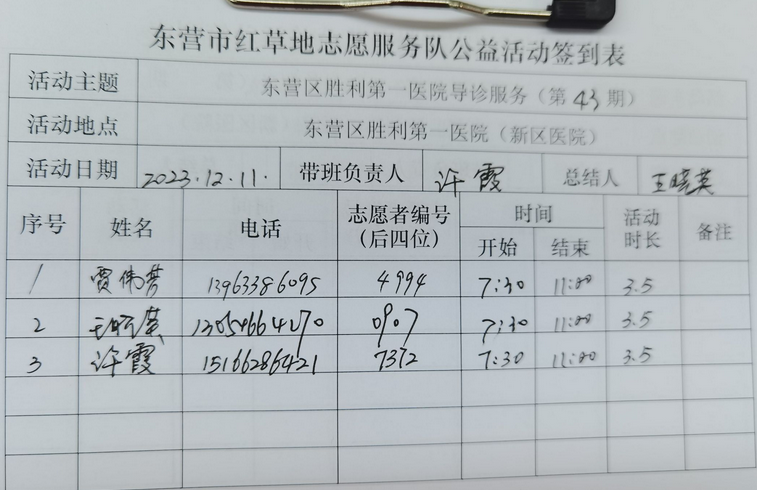 东营市红草地志愿服务队公益活动签到表
活动主题 东营区胜利第一医院导诊服务（第43期）
活动地点 东营区胜利第一医院（新区医院）
活动日期 2023.12.11. 带班负责人 许霞 总结人 王晓英
序号 姓名 电话 志愿者编号（后四位） 时间 开始 结束 活动时长 备注
1 贾伟芳 13963386095 4994 7:30 11:00 3.5
2 王晓英 0907 7:30 11:00 3.5
3 许霞 15166286421 7372 7:30 11:00 3.5